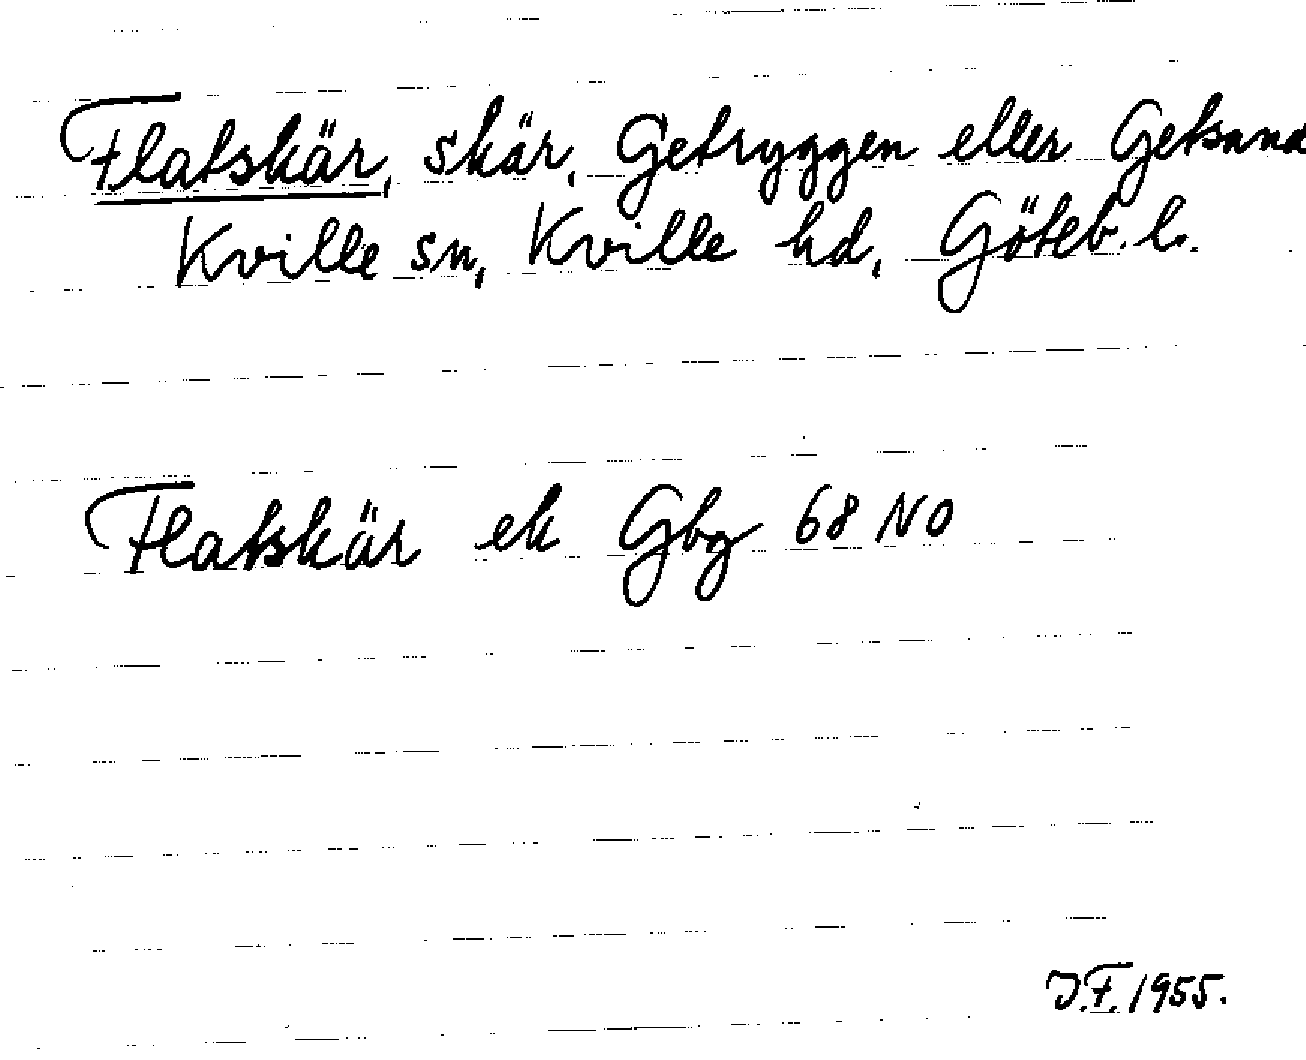 Flatskär, skär, Getryggen eller
Kville sn, Kville hd, Göteb. l.
Flatskär ek Gbg 68 NO
J.F. 1955.